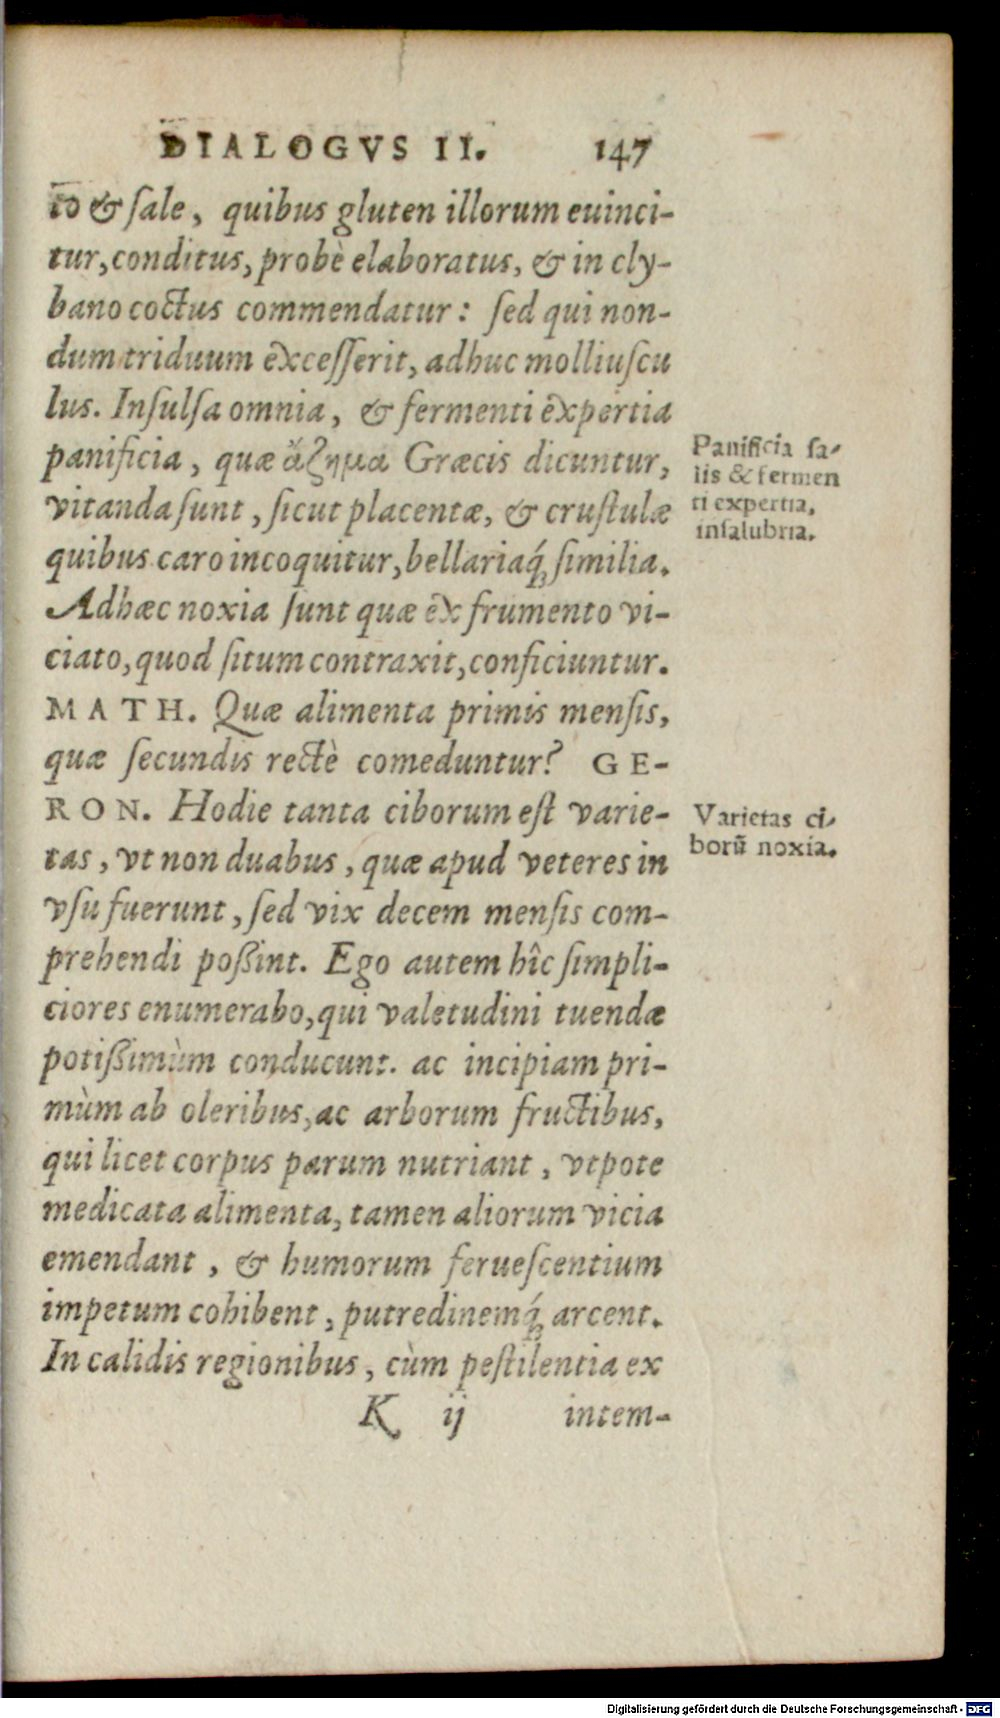 DIALOGVS II. 147
to & ſale, quibus gluten illorum euinci-
tur, conditus, probè elaboratus, & in cly-
bano coctus commendatur: ſed qui non-
dum triduum exceſſerit, adhuc molliuſcu
lus. Inſulſa omnia, & fermenti expertia
panificia, quæ ἄζημα Græcis dicuntur,
vitanda ſunt, ſicut placentæ, & cruſtulæ
quibus caro incoquitur, bellariaq́; ſimilia.
Adhæc noxia ſunt quæ ex frumento vi-
ciato, quod ſitum contraxit, conficiuntur.
MATH. Quæ alimenta primis menſis,
quæ ſecundis rectè comeduntur? GE-
RON. Hodie tanta ciborum eſt varie-
tas, vt non duabus, quæ apud veteres in
vſu fuerunt, ſed vix decem menſis com-
prehendi poßint. Ego autem hîc ſimpli-
ciores enumerabo, qui valetudini tuendæ
potißimùm conducunt. ac incipiam pri-
mùm ab oleribus, ac arborum fructibus,
qui licet corpus parum nutriant, vtpote
medicata alimenta, tamen aliorum vicia
emendant, & humorum ferueſcentium
impetum cohibent, putredinemq́; arcent.
In calidis regionibus, cùm peſtilentia ex
K ij intem-
Panificia ſa-
lis & fermen
ti expertia,
inſalubria.
Varietas ci-
borū noxia.
Digitalisierung gefördert durch die Deutsche Forschungsgemeinschaft - DFG